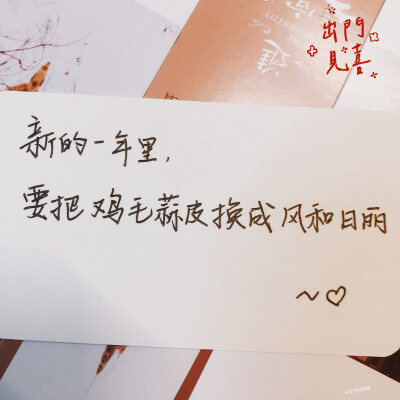 出門
見喜
新的一年里，
要把鸡毛蒜皮换成风和日丽
~♡